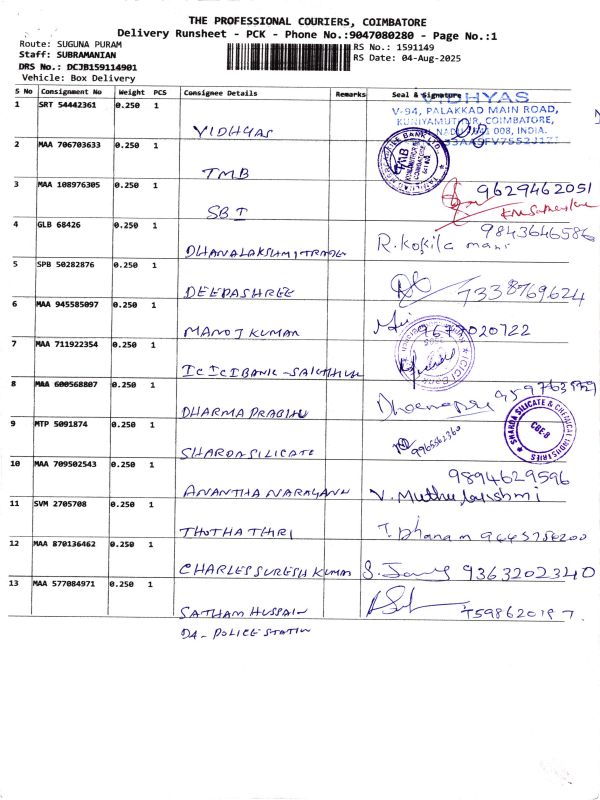 THE PROFESSIONAL COURIERS, COIMBATORE
Delivery Runsheet - PCK - Phone No.:9047080280 - Page No.:1
Route: SUGUNA PURAM
RS No.: 1591149
Staff: SUBRAMANIAN
RS Date: 04-Aug-2025
DRS No.: DCJB159114901
Vehicle: Box Delivery
S No Consignment No Weight PCS Consignee Details Remarks Seal & Signature
1 SRT 54442361 0.250 1 VIDHYAS
VIDHYAS
V-94, PALAKKAD MAIN ROAD,
KUNIYAMUTHUR, COIMBATORE,
008, INDIA.
2 MAA 706703633 0.250 1 TMB
TMB
3 MAA 108976305 0.250 1 SBI 9629462051
4 GLB 68426 0.250 1 DHANALAKSHMITRADE R. Kokila mani 9843646586
5 SPB 50282876 0.250 1 DEEPASHREE 7338769624
6 MAA 945585097 0.250 1 MANOJ KUMAR 9677020722
7 MAA 711922354 0.250 1 ICICIBANK
ICICI Bank
8 MAA 600568807 0.250 1 DHARMA PRABHU
9 MTP 5091874 0.250 1 SHARDASILICATE 9965562360
SHARDA SILICATE & CHEMICAL INDUSTRIES
CBE-8
10 MAA 709502543 0.250 1 ANANTHA NARAYANN 9894629596
V. Muthulakshmi
11 SVM 2705708 0.250 1 THOTHATHRI T. Dhanam
12 MAA 870136462 0.250 1 CHARLES SURESH KUMAR 9363202340
13 MAA 577084971 0.250 1 SATHAM HUSSAIN
D4- POLICE STATIN